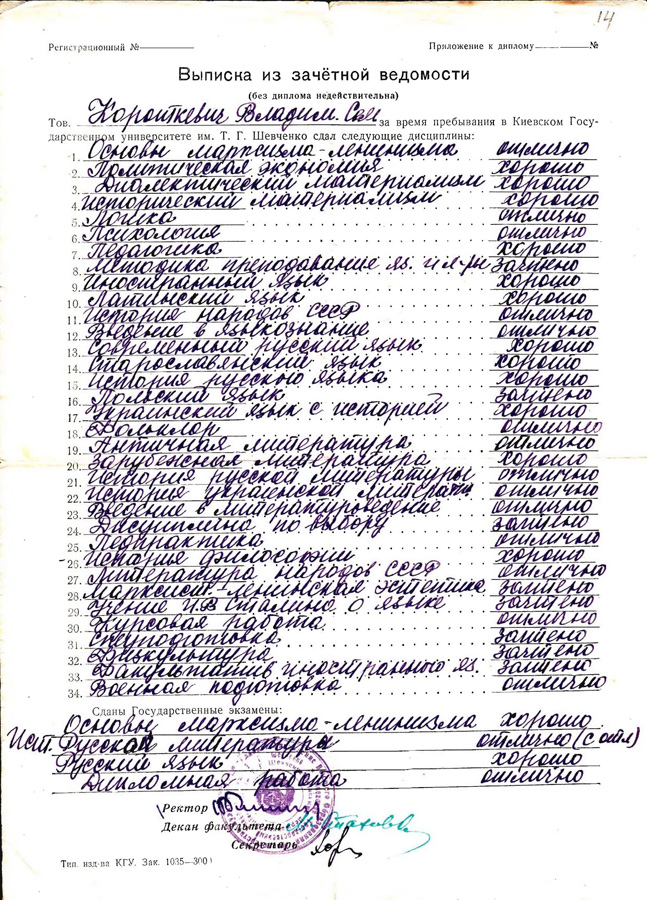 14
Регистрационный № Приложение к диплому №
Выписка из зачётной ведомости
(без диплома недействительна)
Тов. Короткевич Владим. Сем за время пребывания в Киевском Госу-
дарственном университете им. Т. Г. Шевченко сдал следующие дисциплины:
1. Основы марксизма-ленинизма отлично
2. Политическая экономия хорошо
3. Диалектический материализм хорошо
4. Исторический материализм хорошо
5. Логика отлично
6. Психология отлично
7. Педагогика хорошо
8. Методика преподавание яз. и л-ры зачтено
9. Иностранный язык хорошо
10. Латинский язык хорошо
11. История народов СССР отлично
12. Введение в языкознание отлично
13. Современный русский язык хорошо
14. Старославянский язык хорошо
15. История русского языка хорошо
16. Польский язык зачтено
17. Украинский язык с историей хорошо
18. Фольклор отлично
19. Античная литература отлично
20. Зарубежная литература хорошо
21. История русской литературы отлично
22. История украинской литерат отлично
23. Введение в литературоведение отлично
24. Дисциплина по выбору зачтено
25. Педпрактика отлично
26. История философии хорошо
27. Литература народов СССР отлично
28. Марксист.-ленинская эстетика зачтено
29. Учение И.В Сталина о языке зачтено
30. Курсовая работа отлично
31. Спецподготовка зачтено
32. Физкультура зачтено
33. Факультатив иностранного яз. зачтено
34. Военная подготовка отлично
Сданы Государственные экзамены:
Основы марксизма-ленинизма хорошо
Ист. Русской литературы отлично (с отл)
Русский язык хорошо
Дипломная работа отлично
Ректор
Декан факультета
Секретарь
Тип. изд-ва КГУ. Зак. 1035—300